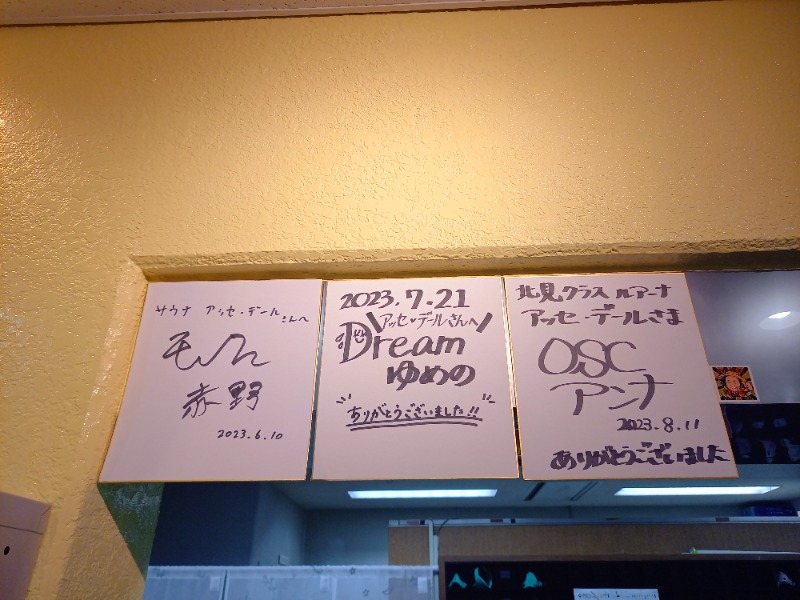 サウナ アッセ・デール
さんへ
赤野
2023.6.10
2023.7.21
アッセ・デールさんへ
Dream
ゆめの
ありがとうございました!!
北見クラス ルアーナ
アッセ・デールさま
OSC
アンナ
2023.8.11
ありがとうございました